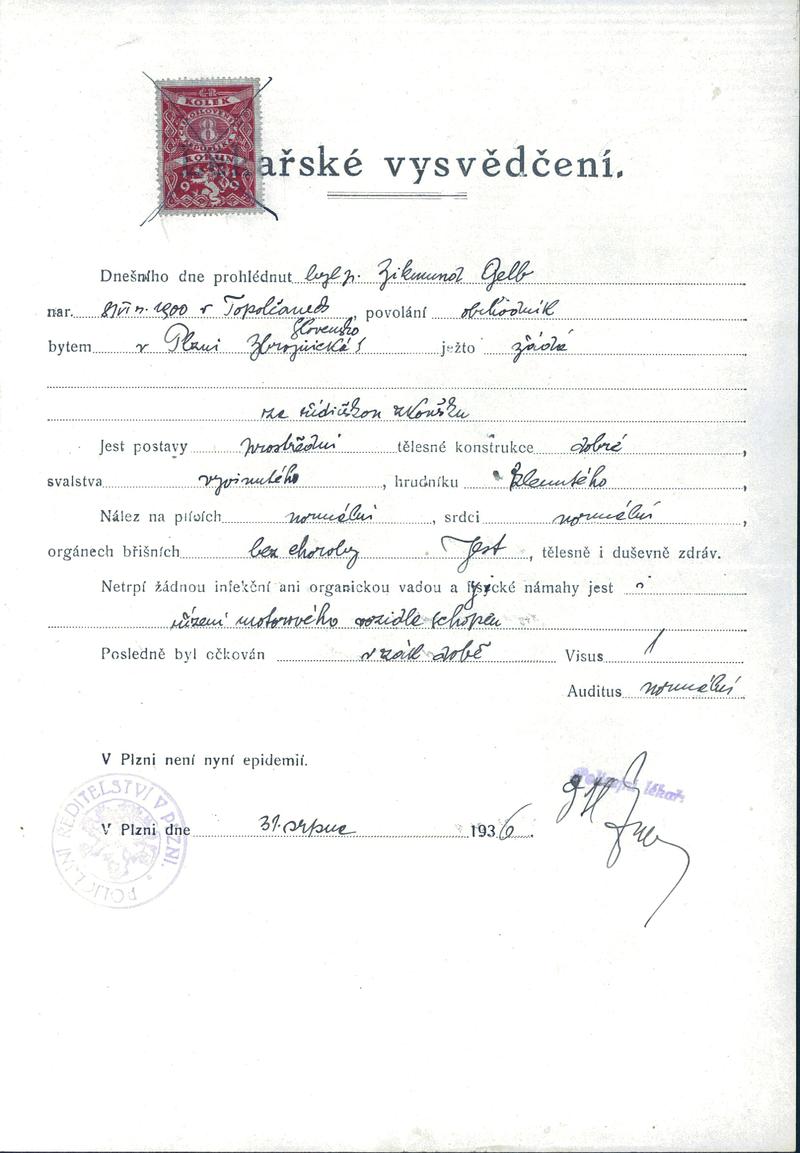 KOLEK
8
KORUN
1919
ařské vysvědčení.
Dnešního dne prohlédnut byl p. Zikmund Gelb
nar. 1900 v Topolčanech, povolání obchodník
Slovensko
bytem v Plzni Zbrojnická 1 ježto žádá
za řidičskou zkoušku
Jest postavy prostřední tělesné konstrukce dobré,
svalstva vyvinutého, hrudníku klenutého,
Nález na plících normální, srdci normální,
orgánech břišních bez choroby Jest, tělesně i duševně zdráv.
Netrpí žádnou infekční ani organickou vadou a fysické námahy jest
řízení motorového vozidle schopen
Posledně byl očkován v zák. době Visus 1
Auditus normální
V Plzni není nyní epidemií.
Policejní lékař.
V Plzni dne 31. srpna 1936.
POLICEJNÍ ŘEDITELSTVÍ V PLZNI.